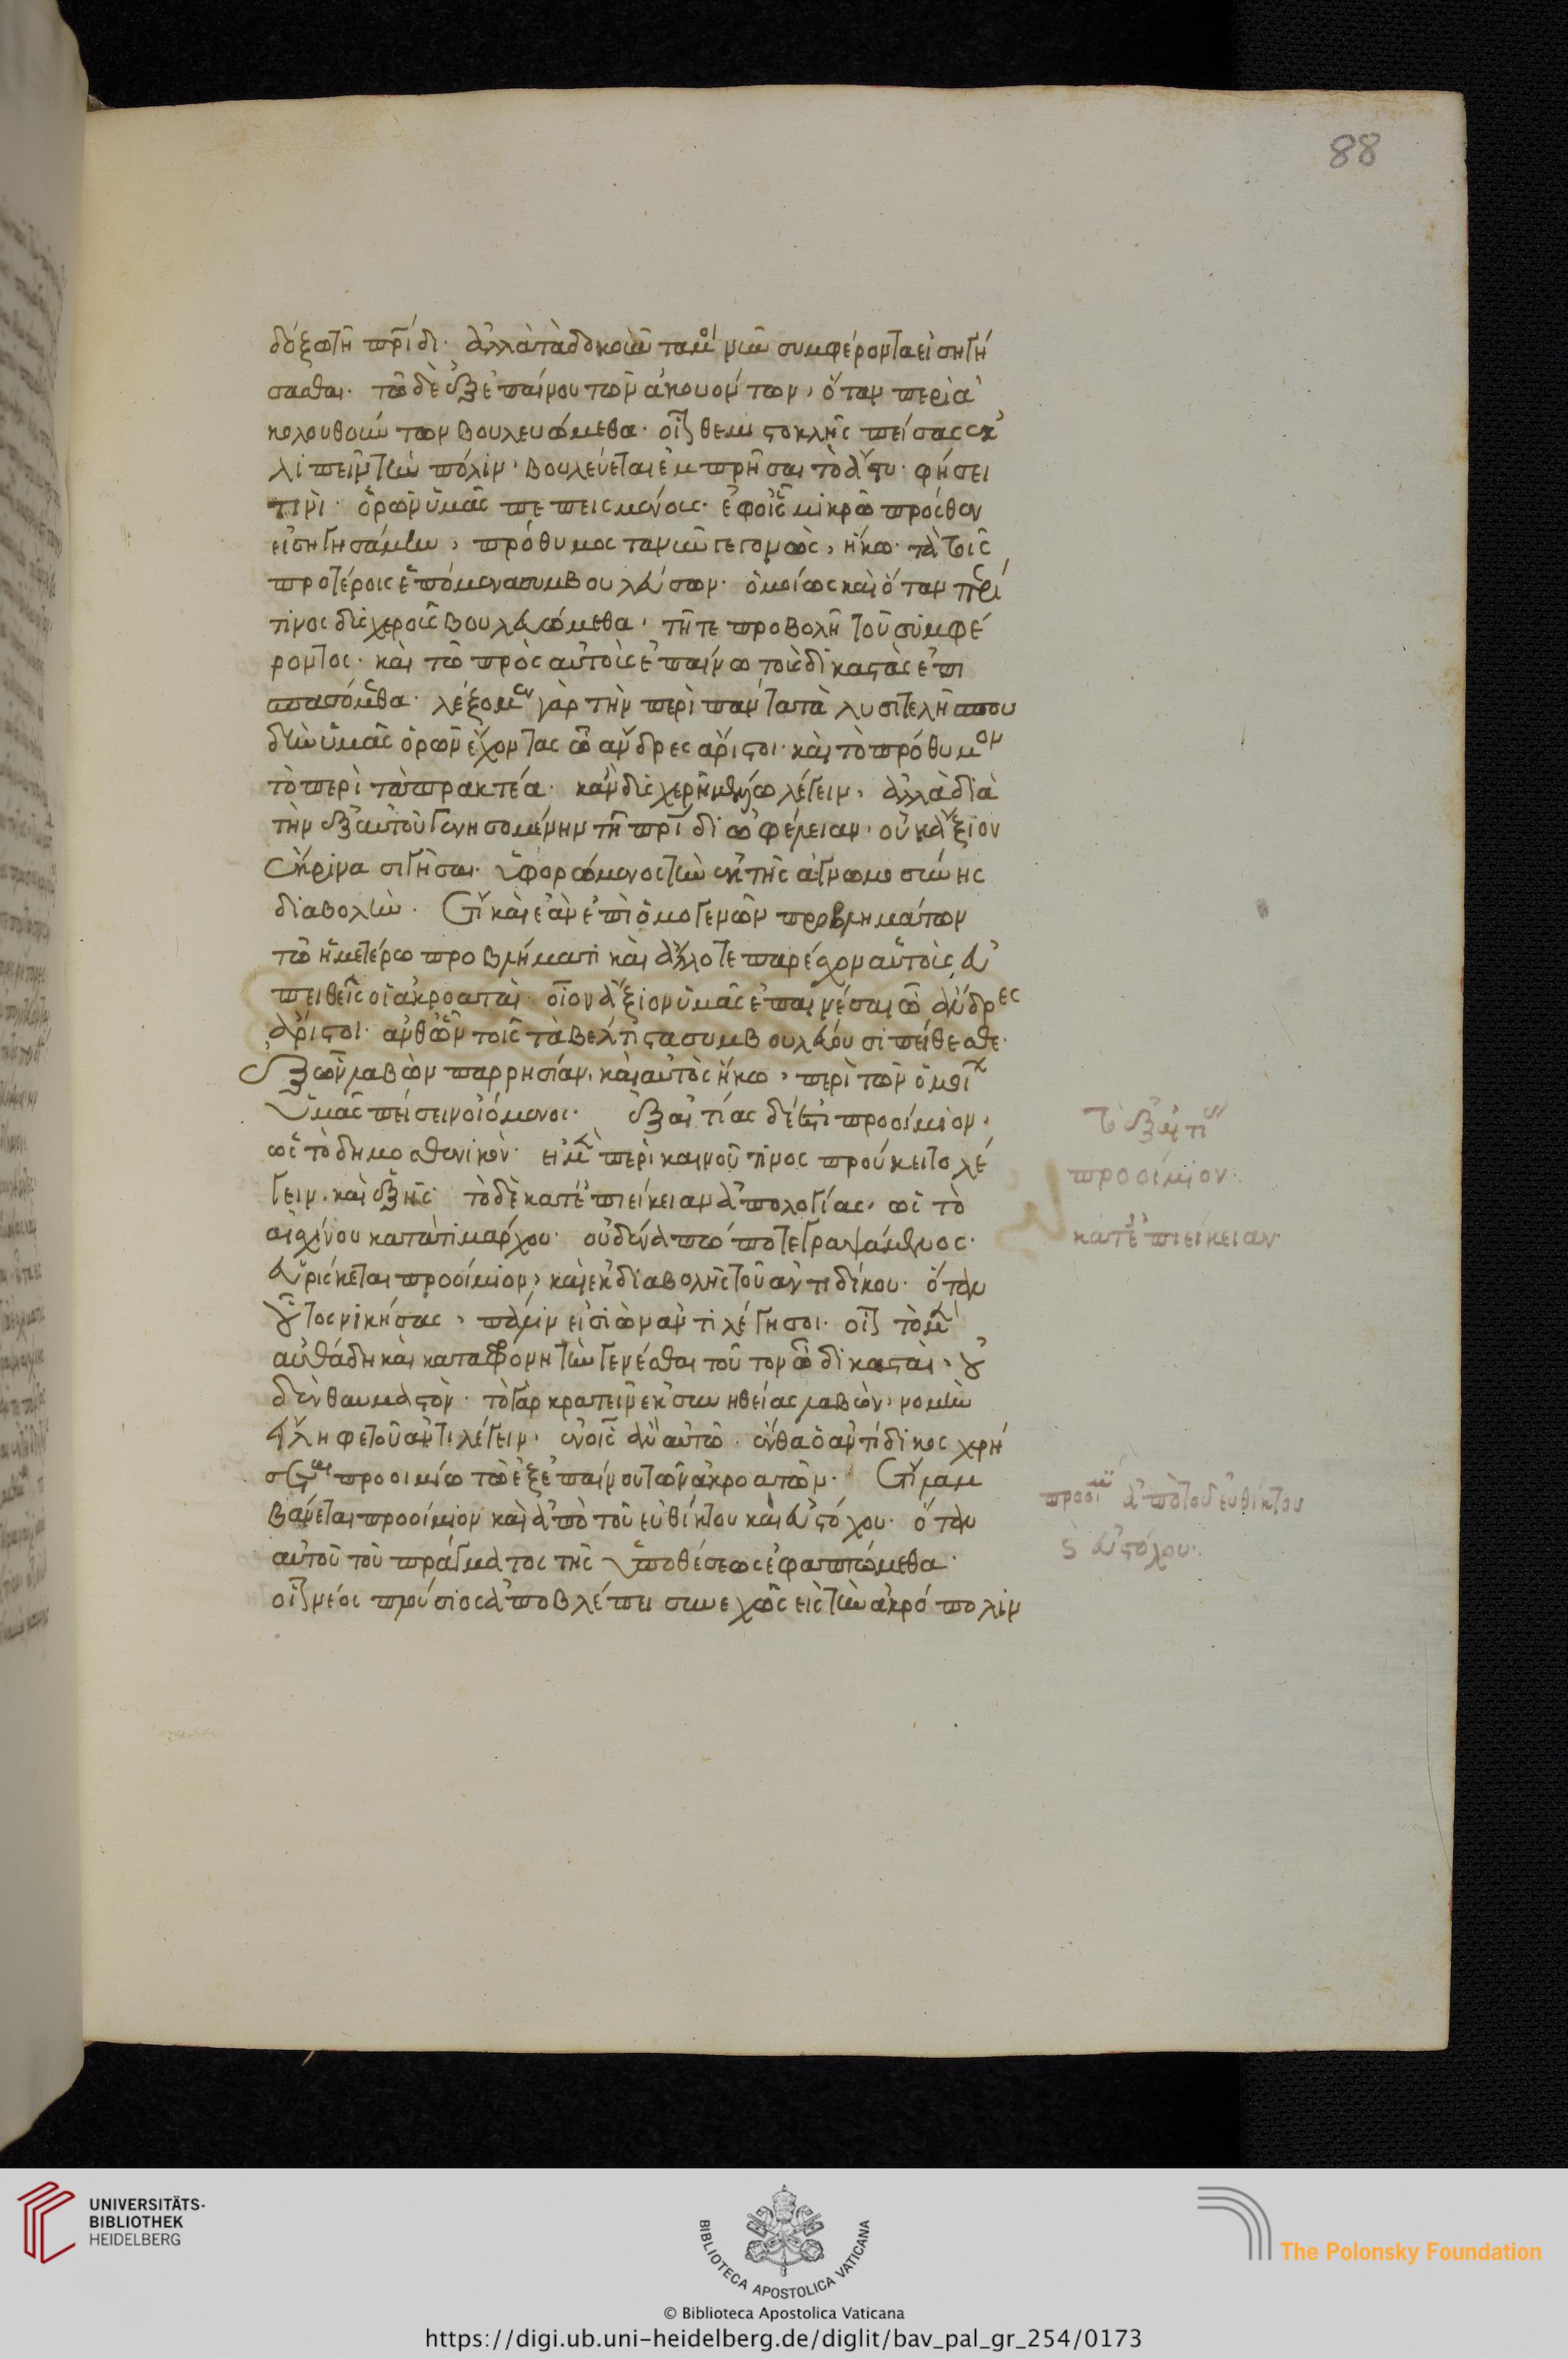 88
δόξω τῆ πρίδι· ἀλλὰ τὰ δοκοῦντά μοι νῦν συμφέροντα εἰσηγή
σασθαι· τῶ δὲ ἐξ ἐπαίνου τῶν ἀκουόντων, ὅταν περὶ ἀ
κολούθων τινῶν βουλευώμεθα· θεμιστοκλῆς πείσας ἐκ
λιπεῖν τὴν πόλιν, βουλεύεται ἐμπρῆσαι τὸ ἄστυ· φήσει
ὁρῶν ὑμᾶς πεπεισμένους ἐφ οἷς μικρῶ πρόσθεν
εἰσηγησάμην, πρόθυμος τανῦν γεγονὼς, ἥκω· τὰ τοῖς
προτέροις ἑπόμενα συμβουλεύσων· ὁμοίως καὶ ὅταν περί
τινος δυσχεροῦς βουλευώμεθα, τῆ τε προβολῆ τοῦ συμφέ
ροντος· καὶ τῶ πρὸς αὐτοὺς ἐπαίνω τοὺς δικαστὰς ἐπι
σπασόμεθα· λέξομεν γὰρ τὴν περὶ πάντα τὰ λυσιτελῆ σπου
δὴν ὑμᾶς ὁρῶν ἔχοντας ὦ ἄνδρες ἄριστοι· καὶ τὸ πρόθυμον
τὸ περὶ τὰ πρακτέα· κἂν δυσχερῆ μέλλω λέγειν, ἀλλὰ διὰ
τὴν ἐξ αὐτοῦ γενησομένην τῆ πρίδι ὠφέλειαν, οὐκ ἄξιον
ἔκρινα σιγῆσαι· ὑφορώμενος τὴν ἐκ τῆς ἀγνωμοσύνης
διαβολήν. ἔτι καὶ ἐὰν ἐπὶ ὁμογενῶν προβλημάτων
τῶ ἡμετέρω προβλήματι καὶ ἄλλοτε παρέσχον αὑτοὺς εὐ
πειθεῖς οἱ ἀκροαταὶ· οἷον ἄξιον ὑμᾶς ἐπαινέσαι ὦ ἄνδρες
ἄριστοι· ἀνθ ὧν τοῖς τὰ βέλτιστα συμβουλεύουσι πείθεσθε·
ἐξ ὧν λαβὼν παρρησίαν, καὶ αὐτὸς ἥκω, περὶ τῶν ὁμοί
ὑμᾶς πείσειν οἰόμενος· ἐξ αἰτίας δέ ἐστι προοίμιον,
ὡς τὸ δημοσθενικὸν· εἰ μὲν περὶ καινοῦ τινος προὔκειτο λέ
γειν, καὶ ἑξῆς· τὸ δὲ κατ ἐπιείκειαν ἀπολογίας, ὡς τὸ
αἰσχίνου κατὰ τιμάρχου· οὐδένα πώποτε γραψάμενος·
εὑρίσκεται προοίμιον, καὶ ἐκ διαβολῆς τοῦ ἀντιδίκου· ὅταν
οὗτος νικήσας, πάλιν εἰσιὼν ἀντιλέγη σοι· τὸ μὲν
αὐθάδη καὶ καταφρονητὴν γενέσθαι τοῦτον ὦ δικασταὶ, οὐ
δὲν θαυμαστὸν· τὸ γὰρ κρατεῖν ἐκ συνηθείας λαβὼν, νομὴν
εἴληφε τοῦ ἀντιλέγειν, ἐν οἷς ἂν αὐτῶ. ἔνθα ὁ ἀντίδικος χρή
σεται προοιμίω τῶ ἐξ ἐπαίνου τῶν ἀκροατῶν· ἔτι λαμ
βάνεται προοίμιον καὶ ἀπὸ τοῦ εὐθίκτου καὶ εὐστόχου· ὅταν
αὐτοῦ τοῦ πράγματος τῆς ὑποθέσεως ἐφαπτώμεθα·
νέος πλούσιος ἀποβλέπει συνεχῶς εἰς τὴν ἀκρόπολιν
τὸ ἐξ αἰτί
προοίμιον·
κατ ἐπιείκειαν·
προοί ἀπὸ τοῦ εὐθίκτου
καὶ εὐστόχου·
UNIVERSITÄTS-
BIBLIOTHEK
HEIDELBERG
BIBLIOTECA APOSTOLICA VATICANA
The Polonsky Foundation
© Biblioteca Apostolica Vaticana
https://digi.ub.uni-heidelberg.de/diglit/bav_pal_gr_254/0173